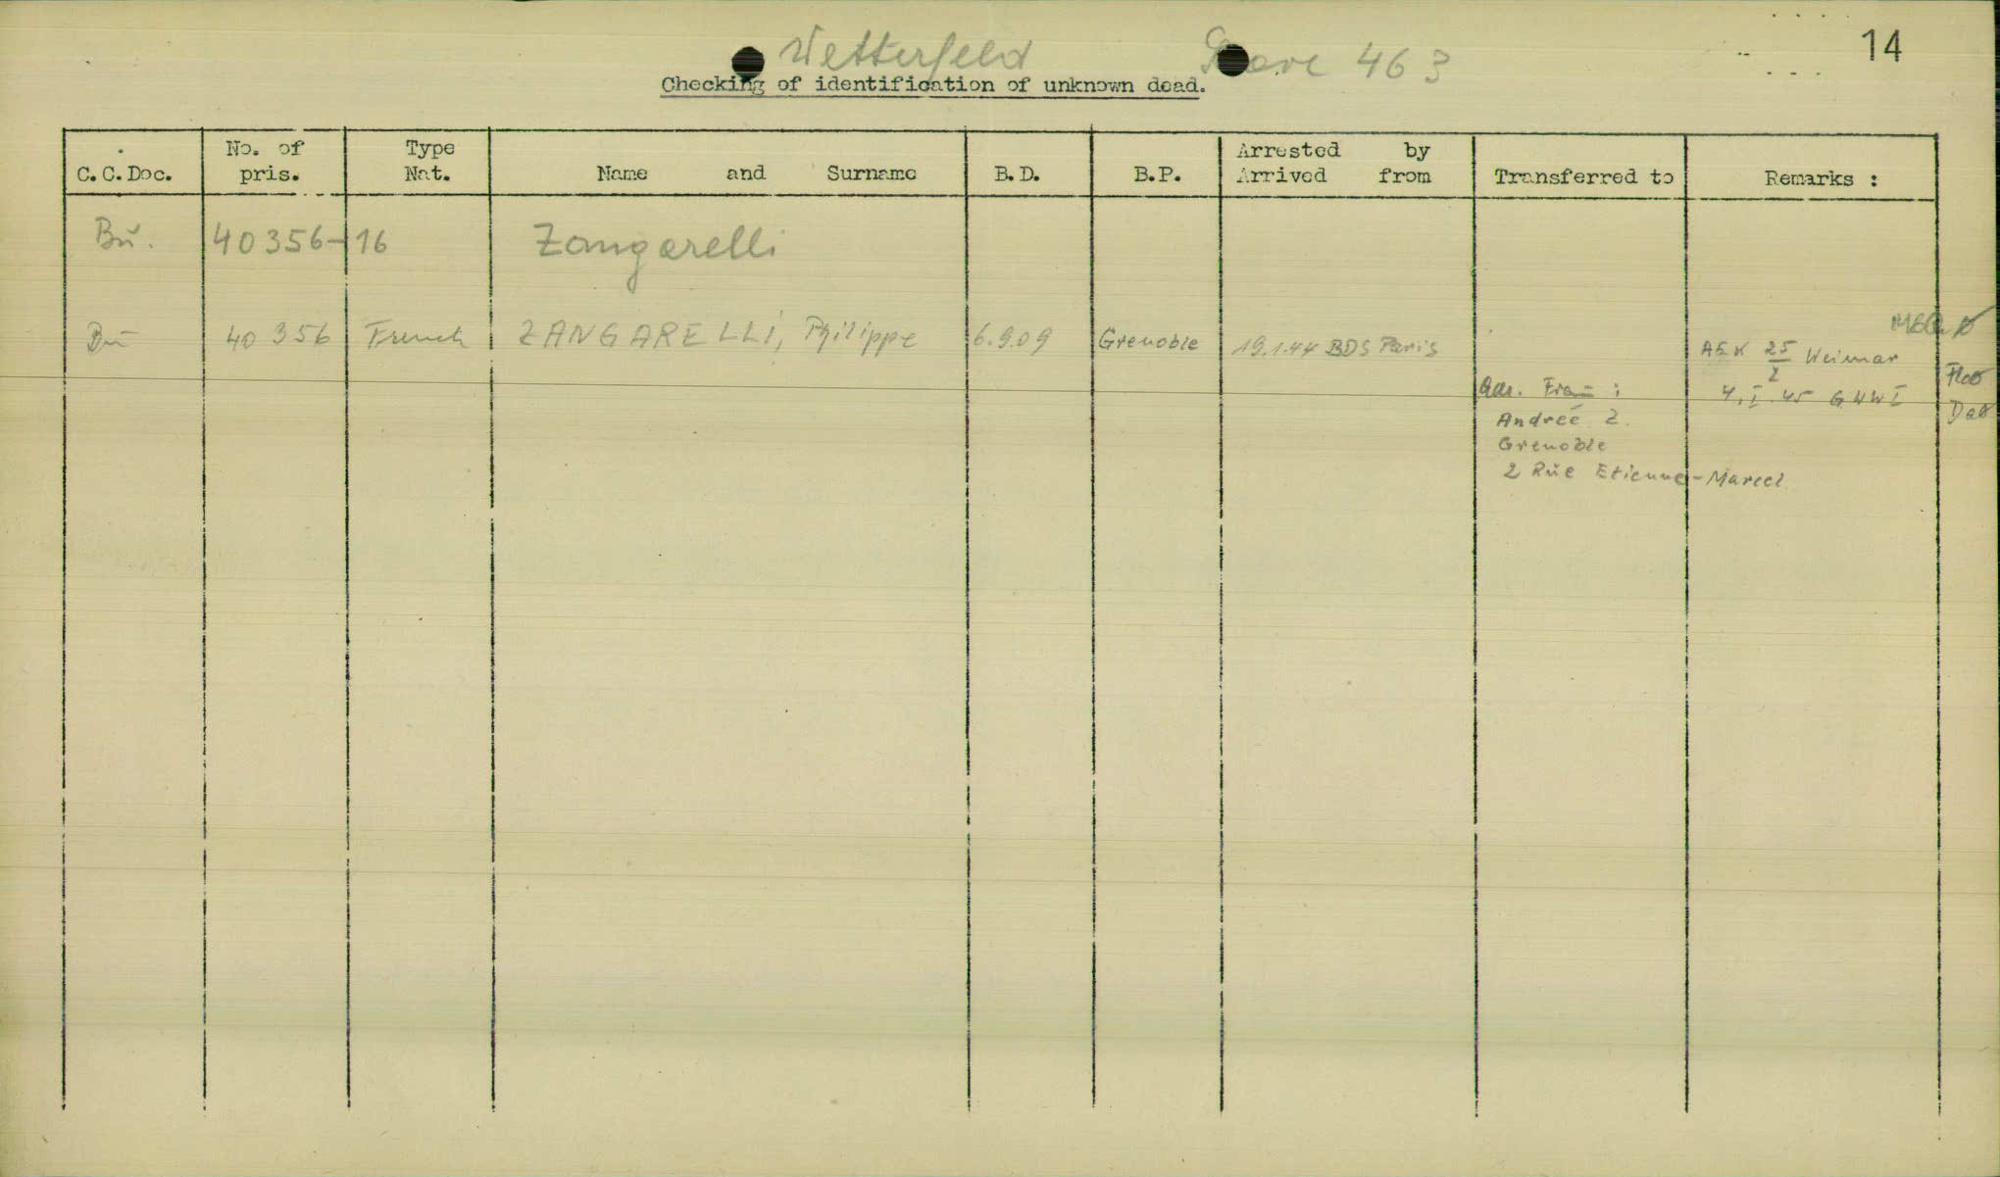 14
Wetterfeld Grave 463
Checking of identification of unknown dead.
C.C.Doc. No. of pris. Type Nat. Name and Surname B.D. B.P. Arrested by Arrived from Transferred to Remarks :
Bŭ. 40356-16 Zangarelli
Bū 40 356 French ZANGARELLI, Philippe 6.9.09 Grenoble 19.1.44 BDS Paris
AEK 25/2 Weimar
4.I.45 GWWI
Adr. Frau :
Andrée Z.
Grenoble
2 Rŭe Etienne-Marcel